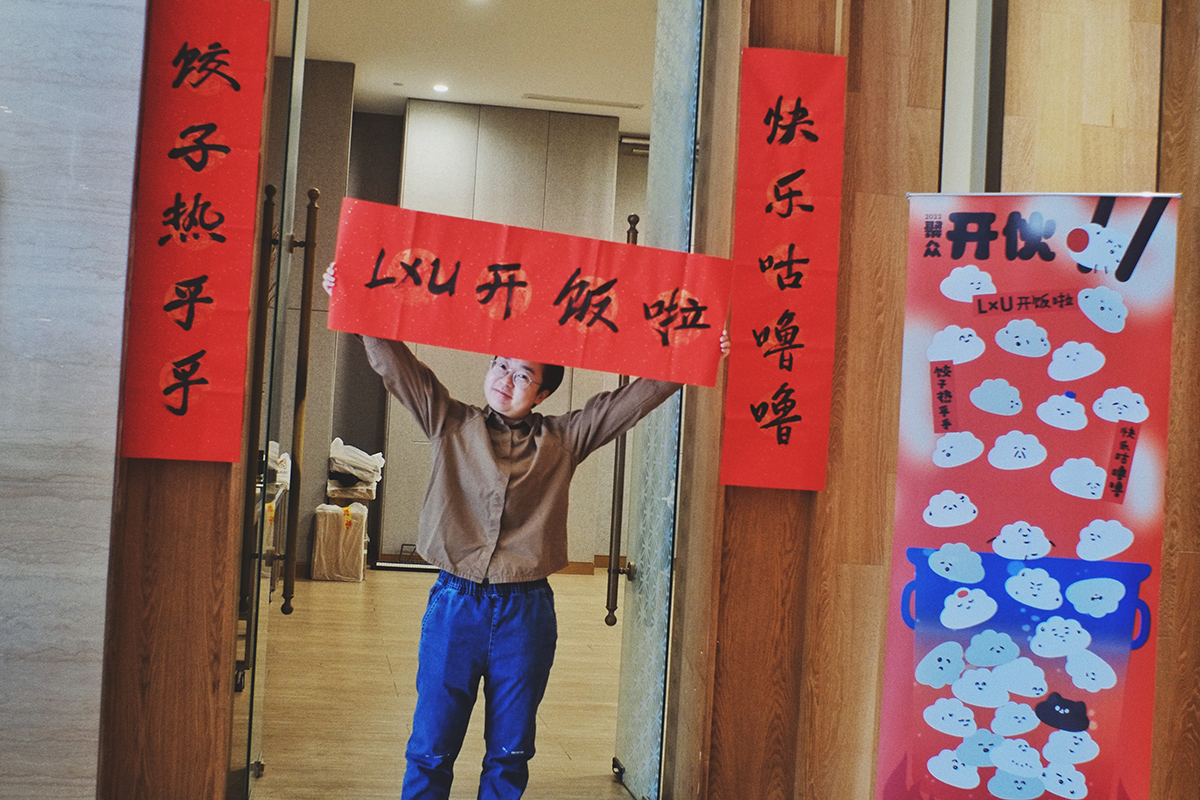 饺子热乎乎
LXU开饭啦
快乐咕噜噜
2022
聚众
开伙
LXU开饭啦
饺子热乎乎
快乐咕噜噜